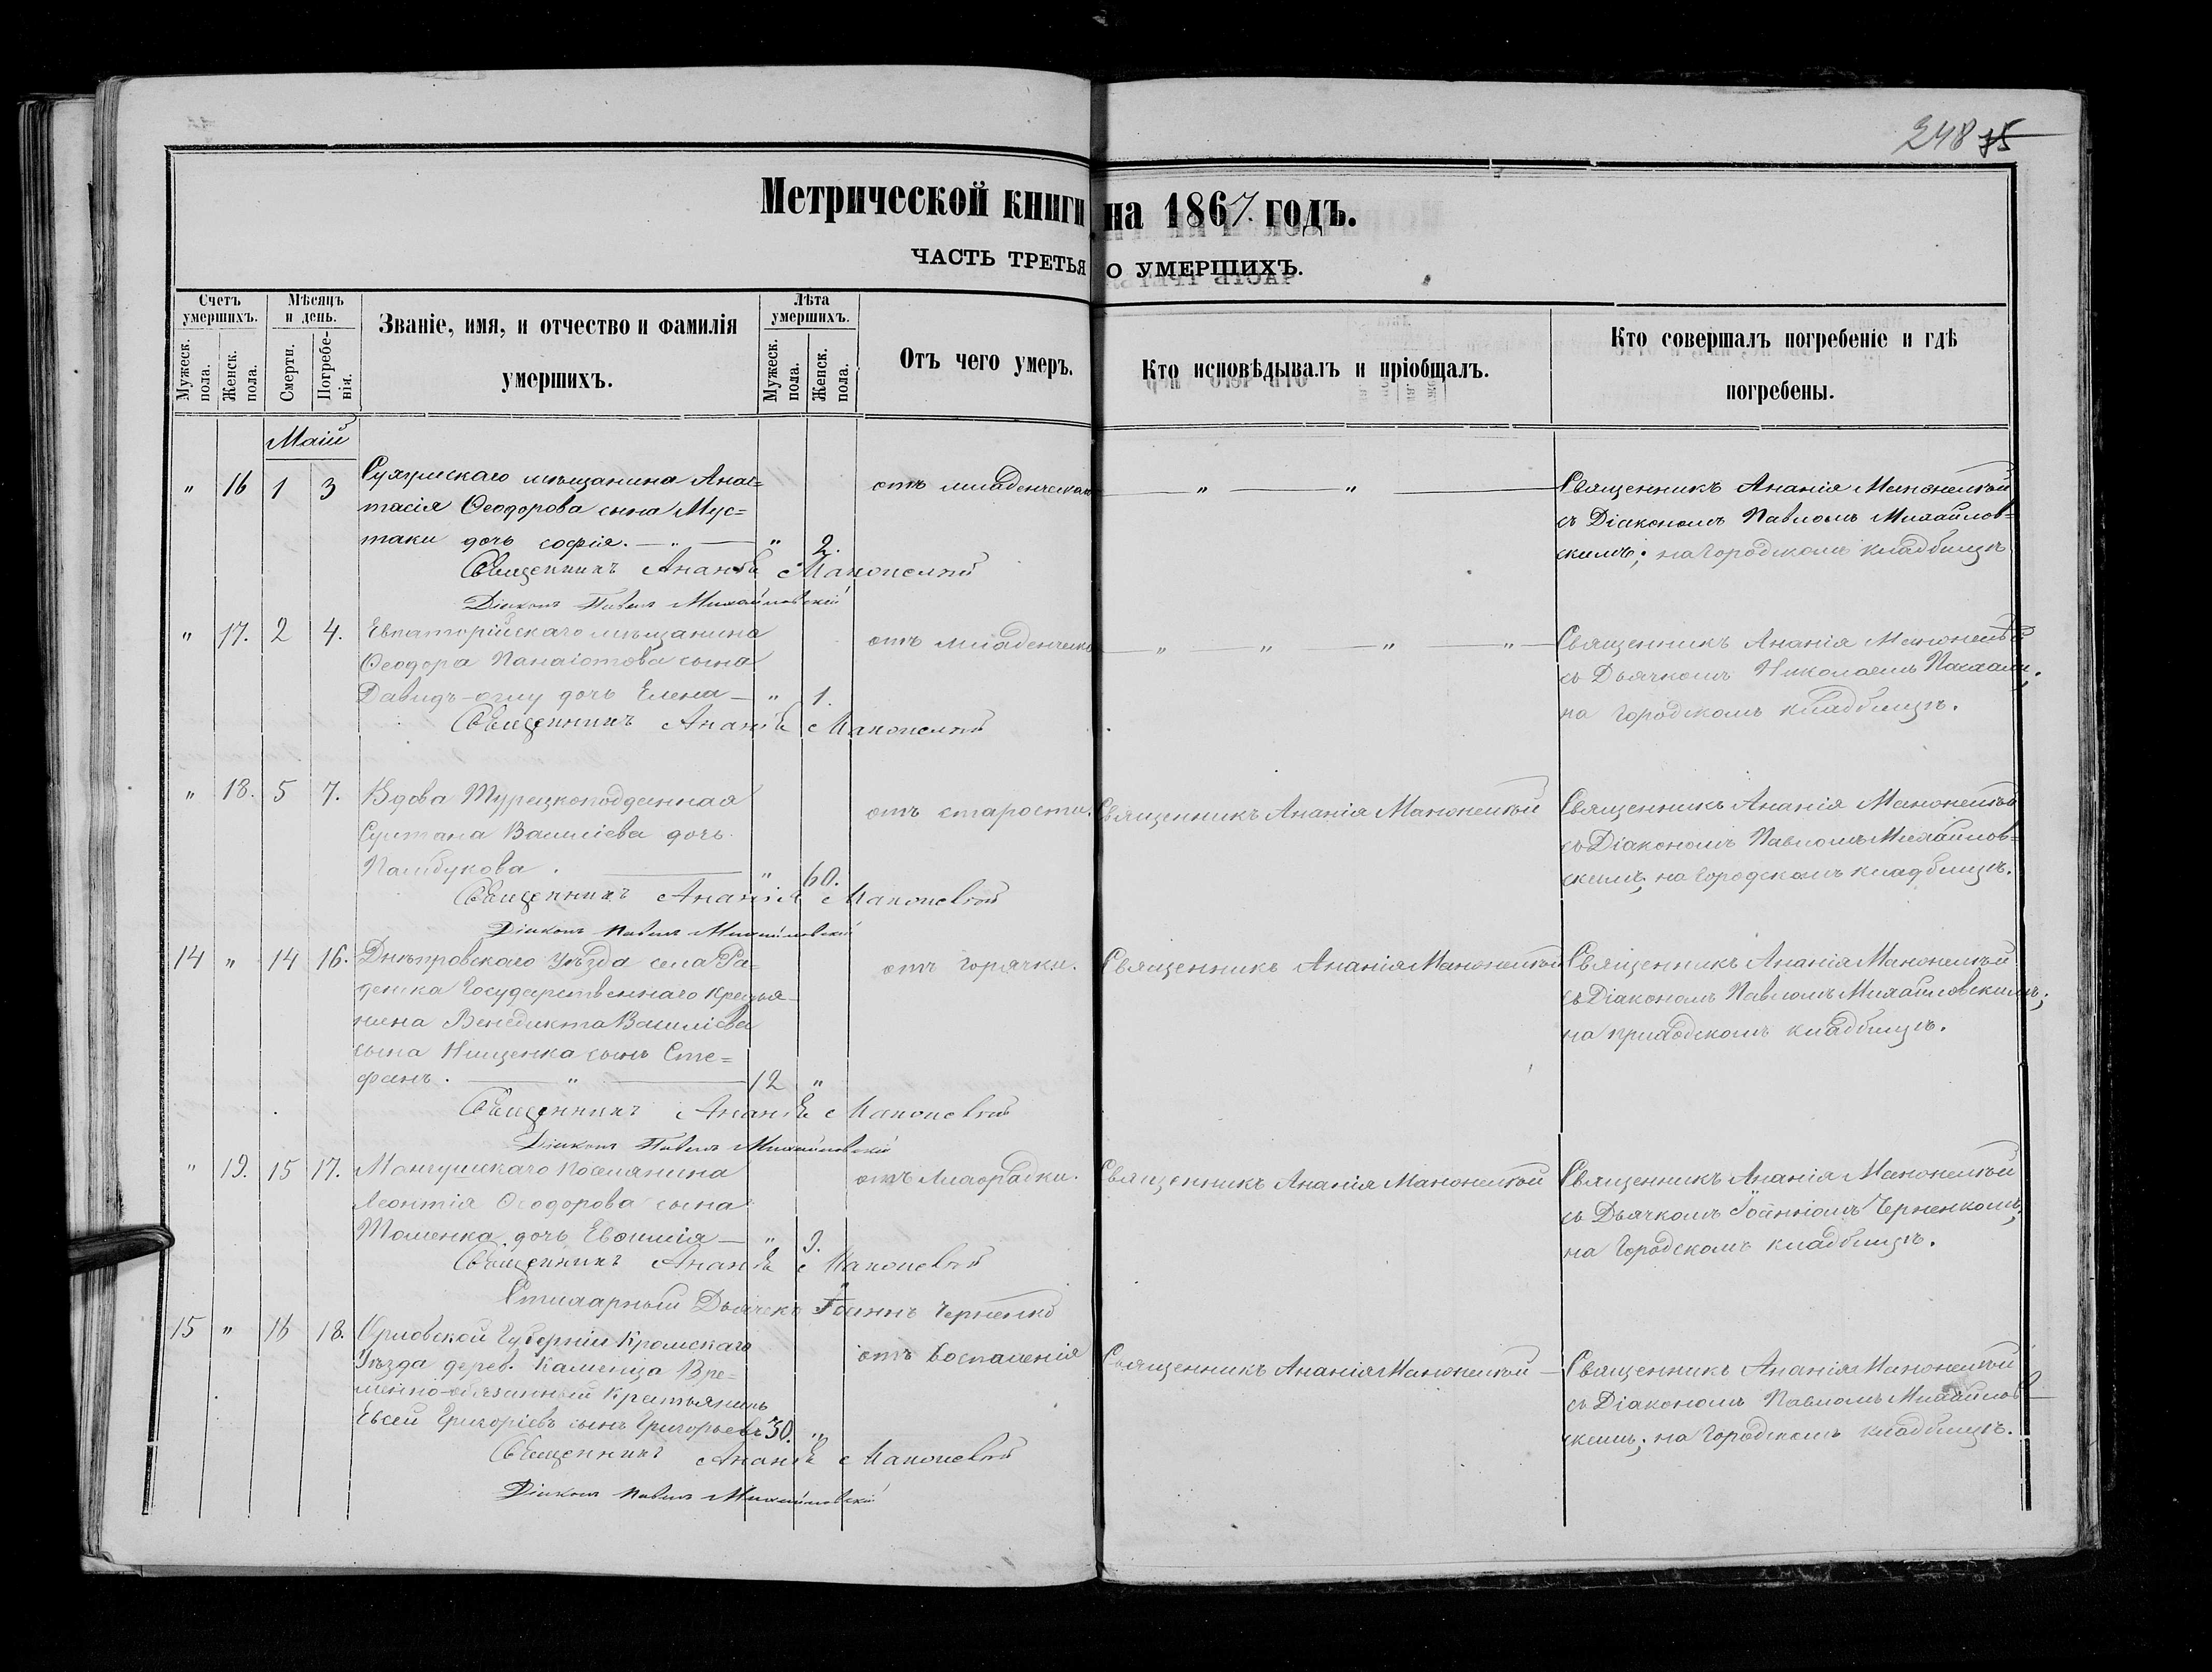 248 75
Метрической книги на 1867. годъ.
ЧАСТЬ ТРЕТЬЯ О УМЕРШИХЪ.
Счетъ умершихъ.
Мужеск. пола.
Женск. пола.
Мѣсяцъ и день.
Смерти.
Погребенія.
Званіе, имя, и отчество и фамилія
умершихъ.
Лѣта умершихъ.
Мужеск. пола.
Женск. пола.
Отъ чего умеръ.
Кто исповѣдывалъ и пріобщалъ.
Кто совершалъ погребеніе и гдѣ
погребены.
Маій
" 16 1 3
мѣщанина Анас=
тасія Ѳеодорова сына Мус=
таки дочь софія. — " — " 2.
отъ младенческой
— " — " —
Священникъ Ананія
съ Діакономъ Павломъ Михайлов=
скимъ; на Городскомъ кладбищѣ
Священникъ Ананія
Діаконъ Павелъ Михайловскій
" 17. 2 4.
Евпаторійскаго мѣщанина
Ѳеодора Панаіотова сына
Давидъ-оглу дочь Елена — " 1.
отъ младенческ
— " — " — " — " —
Священникъ Ананія
съ Дьячкомъ Николаемъ
на Городскомъ кладбищѣ.
Священникъ Ананія
" 18. 5 7.
Вдова Турецкоподданная
Султана Василіева дочь
Памбукова. — " 60.
отъ старости.
Священникъ Ананія
Священникъ Ананія
съ Діакономъ Павломъ Михайлов=
скимъ; на Городскомъ кладбищѣ.
Священникъ Ананія
Діаконъ Павелъ Михайловскій
14 " 14 16.
Днѣпровскаго Уѣзда села Ра=
денска Государственнаго Крестья
нина Венедикта Василіева
сына Нищенка сынъ Сте=
фанъ. — " — 12 "
отъ горячки.
Священникъ Ананія
Священникъ Ананія
съ Діакономъ Павломъ Михайловскимъ;
на приходскомъ кладбищѣ.
Священникъ Ананія
Діаконъ Павелъ Михайловскій
" 19. 15 17.
поселянина
Леонтія Ѳеодорова сына
дочь Евѳимія — " 9.
отъ лихорадки.
Священникъ Ананія
Священникъ Ананія
съ Дьячкомъ Іоанномъ Черненкомъ;
на Городскомъ кладбищѣ.
Священникъ Ананія
Стихарный Дьячекъ Іоаннъ Черненко
15 " 16 18.
Орловской Губерніи Кромскаго
Уѣзда дерев. Каменца Вре=
менно-обязанный Крестьянинъ
Евсей Григоріевъ сынъ Григорьевъ 50. "
отъ воспаленія
Священникъ Ананія
Священникъ Ананія
съ Діакономъ Павломъ Михайлов
скимъ; на Городскомъ кладбищѣ.
Священникъ Ананія
Діаконъ Павелъ Михайловскій